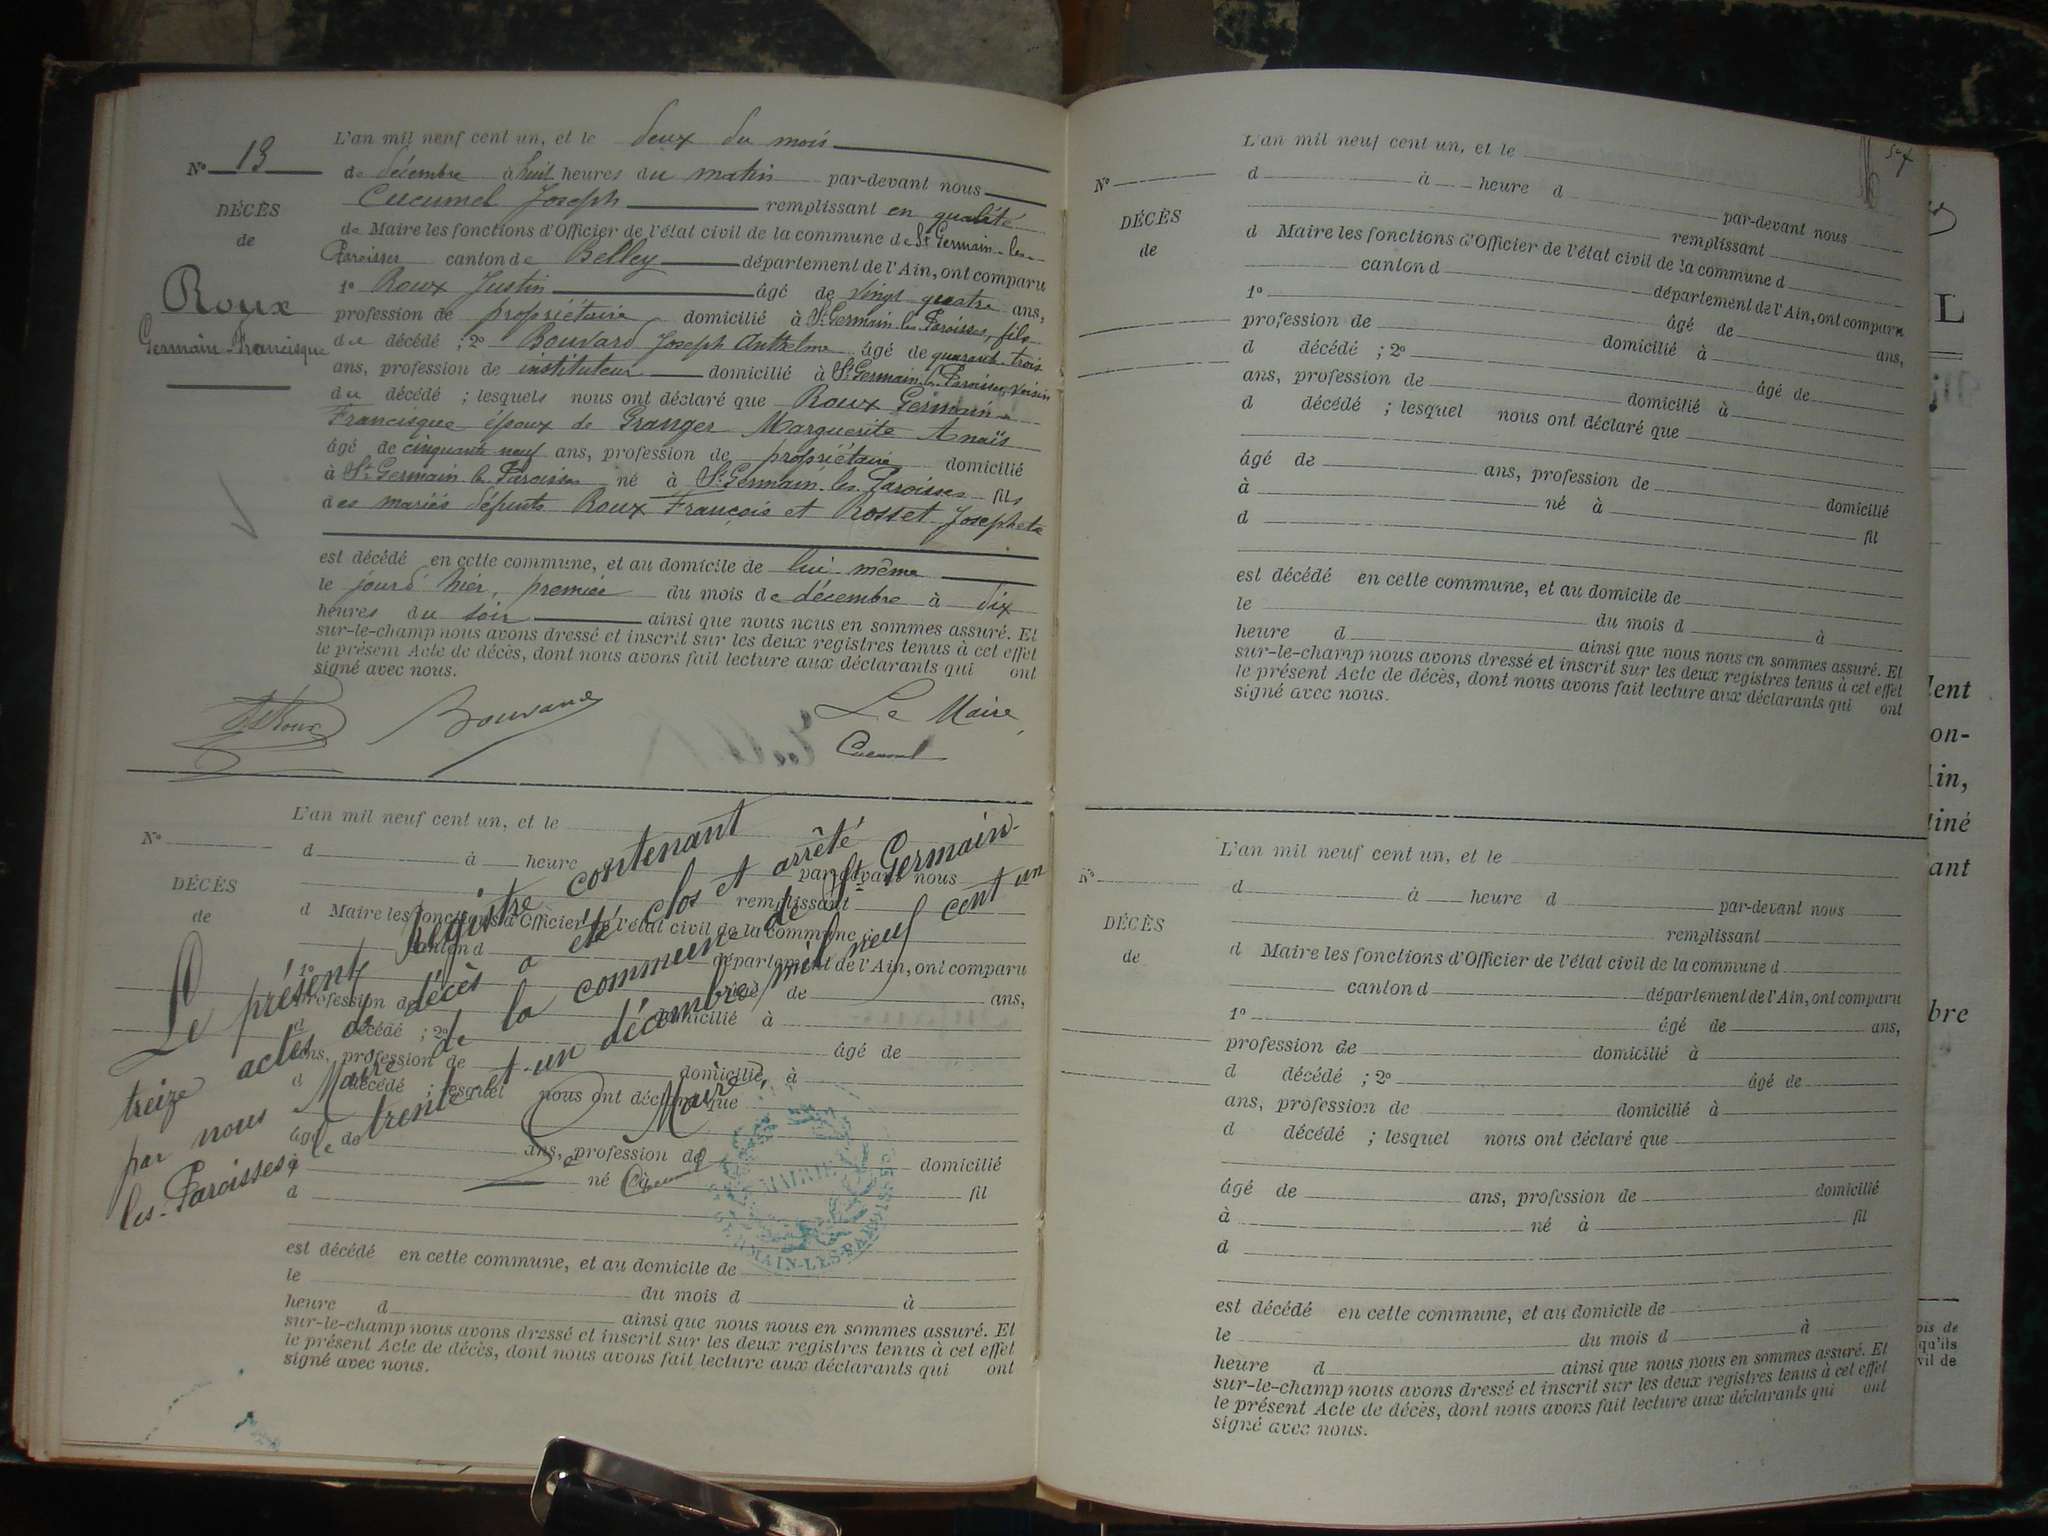 L'an mil neuf cent un, et le deux du mois
N° 13
de décembre à huit heures du matin par-devant nous
Cucumel Joseph remplissant en qualité
DÉCÈS
de Maire les fonctions d'Officier de l'état civil de la commune de St Germain-les-
de
Paroisses canton de Belley département de l'Ain, ont comparu
Roux
1° Roux Justin âgé de vingt quatre ans,
profession de propriétaire domicilié à St Germain les Paroisses, fils
Germain-Francisque
du décédé ; 2° Bouvard Joseph Anthelme âgé de quarante trois
ans, profession de instituteur domicilié à St Germain les Paroisses, voisin
du décédé ; lesquels nous ont déclaré que Roux Germain
Francisque époux de Granger Marguerite Anaïs
âgé de cinquante neuf ans, profession de propriétaire domicilié
à St Germain les Paroisses né à St Germain les Paroisses fils
des mariés défunts Roux François et Rosset Josephete
est décédé en cette commune, et au domicile de lui même
le jourd'hier, premier du mois de décembre à dix
heures du soir ainsi que nous nous en sommes assuré. Et
sur-le-champ nous avons dressé et inscrit sur les deux registres tenus à cet effet
le présent Acte de décès, dont nous avons fait lecture aux déclarants qui ont
signé avec nous.
Roux Bouvard Le Maire,
Cucumel
L'an mil neuf cent un, et le
N°
d à heure
par-devant nous
DÉCÈS
remplissant
de
d Maire les fonctions d'Officier de l'état civil de la commune
canton d département de l'Ain, ont comparu
1° âgé de ans,
profession de domicilié à
d décédé ; 2° âgé de
ans, profession de domicilié à
d décédé ; lesquel nous ont déclaré que
âgé de ans, profession de domicilié
à né à fil
d
est décédé en cette commune, et au domicile de
le du mois d à
heure d ainsi que nous nous en sommes assuré. Et
sur-le-champ nous avons dressé et inscrit sur les deux registres tenus à cet effet
le présent Acte de décès, dont nous avons fait lecture aux déclarants qui ont
signé avec nous.
Le présent Registre contenant
treize actes de décès a été clos et arrêté
par nous Maire de la commune de St Germain-
les-Paroisses, le trente-et-un décembre mil neuf cent un
Le Maire,
Cucumel
MAIRIE
GERMAIN-LES-PAROISSES
L'an mil neuf cent un, et le
N°
d à heure d
par-devant nous
DÉCÈS
remplissant
de
d Maire les fonctions d'Officier de l'état civil de la commune d
canton d département de l'Ain, ont comparu
1° âgé de ans,
profession de domicilié à
d décédé ; 2° âgé de
ans, profession de domicilié à
d décédé ; lesquel nous ont déclaré que
âgé de ans, profession de domicilié
à né à fil
d
est décédé en cette commune, et au domicile de
le du mois d à
heure d ainsi que nous nous en sommes assuré. Et
sur-le-champ nous avons dressé et inscrit sur les deux registres tenus à cet effet
le présent Acte de décès, dont nous avons fait lecture aux déclarants qui ont
signé avec nous.
L'an mil neuf cent un, et le
N°
d à heure d par-devant nous
remplissant
DÉCÈS
de
d Maire les fonctions d'Officier de l'état civil de la commune d
canton d département de l'Ain, ont comparu
1° âgé de ans,
profession de domicilié à
d décédé ; 2° âgé de
ans, profession de domicilié à
d décédé ; lesquel nous ont déclaré que
âgé de ans, profession de domicilié
à né à fil
d
est décédé en cette commune, et au domicile de
le du mois d à
heure d ainsi que nous nous en sommes assuré. Et
sur-le-champ nous avons dressé et inscrit sur les deux registres tenus à cet effet
le présent Acte de décès, dont nous avons fait lecture aux déclarants qui ont
signé avec nous.
L
lent
on-
lin,
ant
bre
ois de
qu'ils
vil de